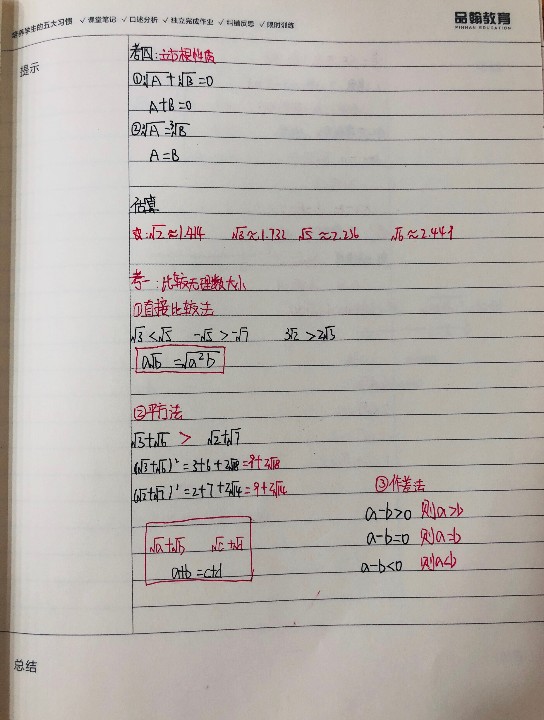 培养学生的五大习惯 ✓课堂笔记 ✓口述分析 ✓独立完成作业 ✓纠错反思 ✓限时训练
品翰教育
PINHAN EDUCATION
提示
考四:立方根性质
①∛A + ∛B = 0
A+B=0
②∛A = ∛B
A=B
估算
√2≈1.414 √3≈1.732 √5≈2.236 √6≈2.449
考一:比较无理数大小
①直接比较法
√3<√5 -√5>-√7 3√2>2√3
a√b = √a²b
②平方法
√3+√6 > √2+√7
(√3+√6)² = 3+6+2√18 = 9+2√18
(√2+√7)² = 2+7+2√14 = 9+2√14
③作差法
a-b>0 则a>b
a-b=0 则a=b
a-b<0 则a<b
√a+√b √c+√d
a+b=c+d
总结